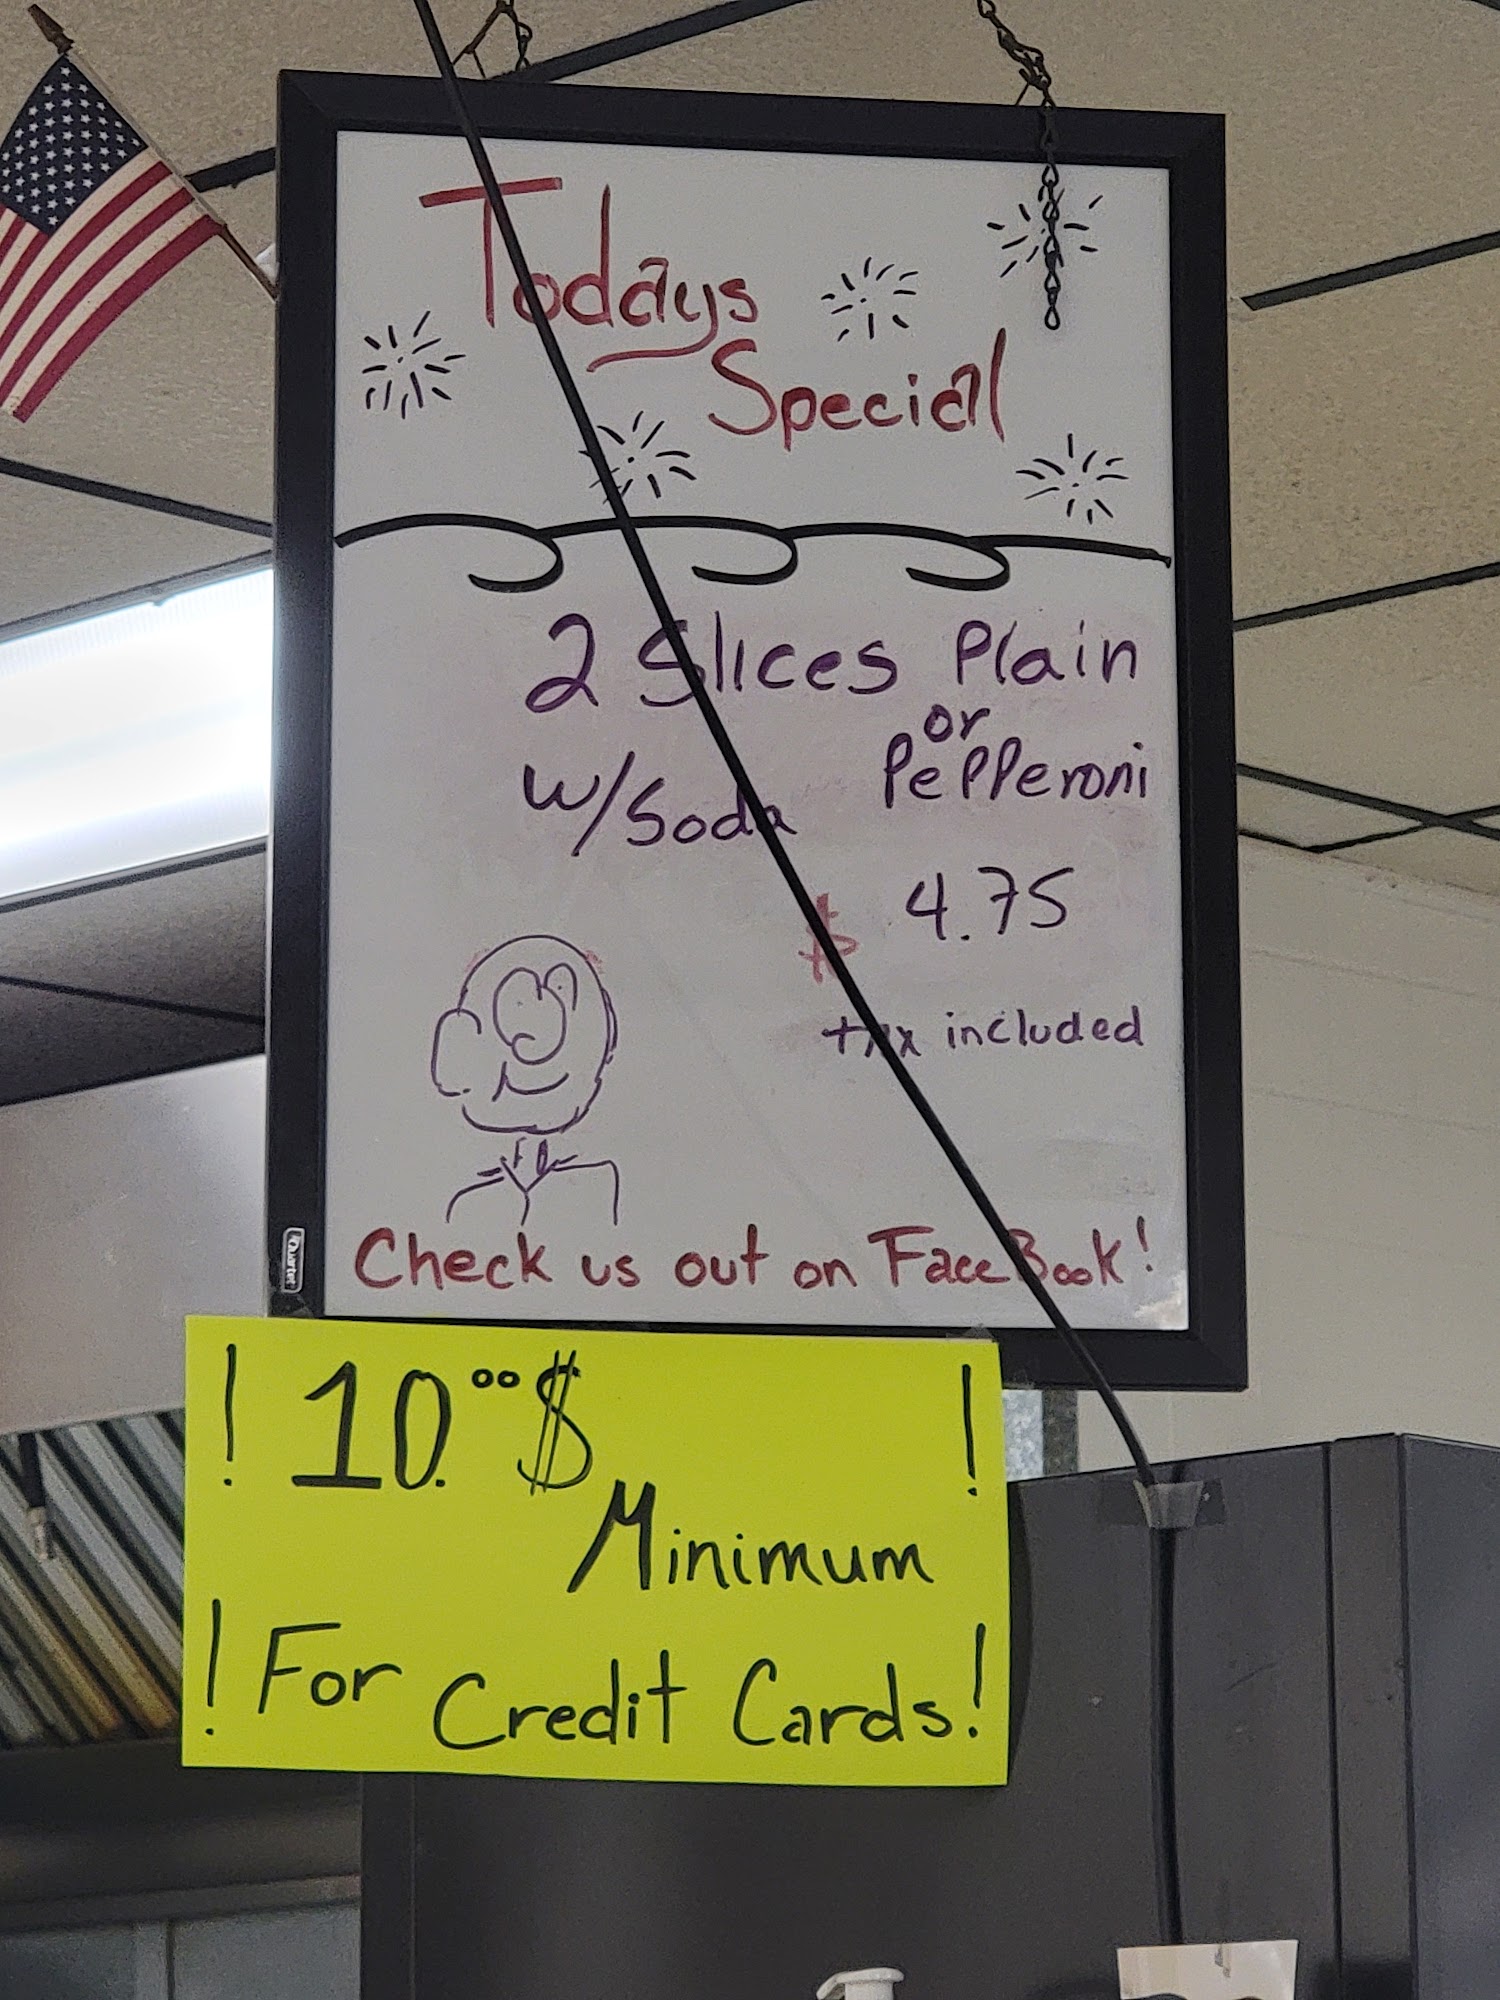 Todays
Special
2 Slices Plain
or
Pepperoni
w/Soda
$ 4.75
tax included
Check us out on FaceBook!
Quartet
! 10.00$ !
Minimum
! For Credit Cards!